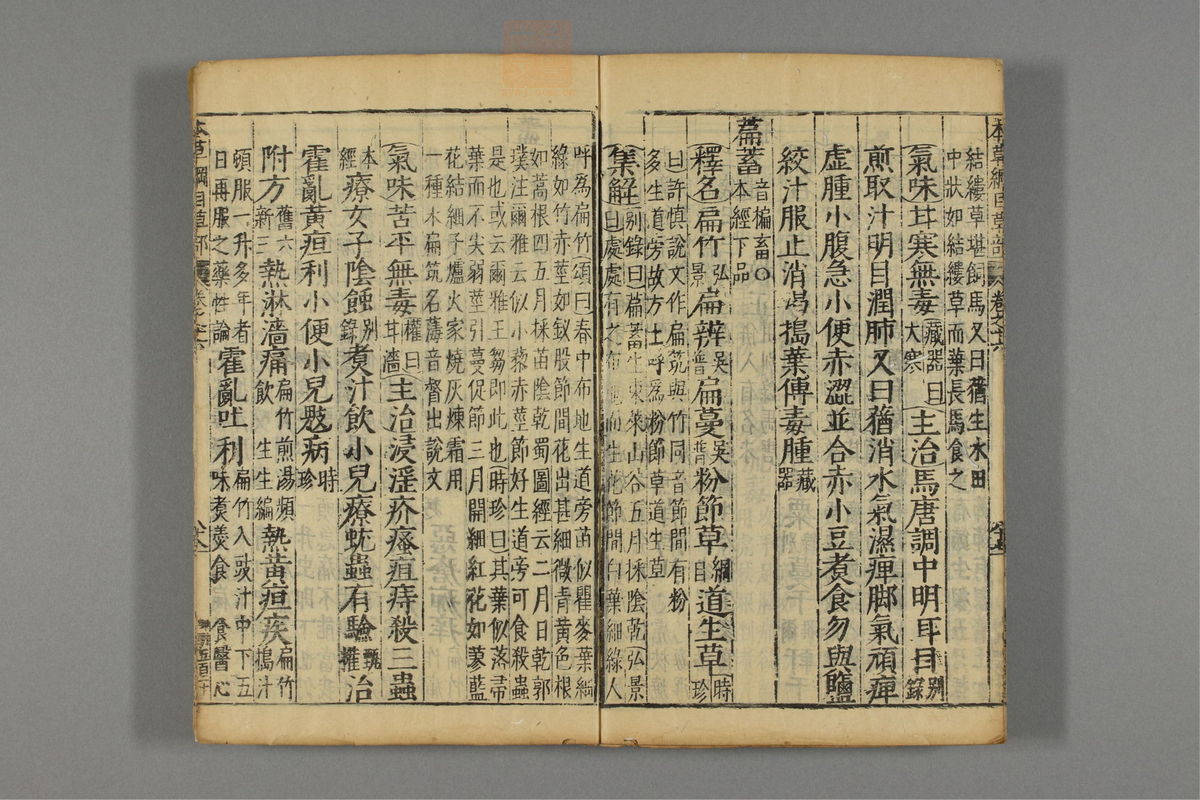 結縷草堪飼馬又曰蕕生水田
中狀如結縷草而葉長馬食之
氣味甘寒無毒藏器曰大寒主治馬唐調中明耳目別錄
煎取汁明目潤肺又曰蕕消水氣濕痺脚氣頑痺
虛腫小腹急小便赤澀並合赤小豆煑食勿與鹽
絞汁服止消渴搗葉傅毒腫藏器
萹蓄音楄畜○本經下品
釋名扁竹弘景扁辨吳普扁蔓吳普粉節草綱目道生草時珍
曰許慎說文作扁筑與竹同音節間有粉
多生道旁故方士呼爲粉節草道生草
集解別錄曰萹蓄生東萊山谷五月採陰乾弘景
曰處處有之布地而生花節間白葉細綠人
呼爲扁竹頌曰春中布地生道旁苗似瞿麥葉細
綠如竹赤莖如釵股節間花出甚細微青黃色根
如蒿根四五月採苗陰乾蜀圖經云二月日乾郭
璞注爾雅云似小藜赤莖節好生道旁可食殺蟲
是也或云爾雅王芻即此也時珍曰其葉似落帚
葉而不尖弱莖引蔓促節三月開細紅花如蓼藍
花結細子爐火家燒灰煉霜用
一種水扁筑名薄音督出說文
氣味苦平無毒權曰甘濇主治浸淫疥瘙疽痔殺三蟲
本經療女子陰蝕別錄煑汁飲小兒療蚘蟲有驗甄權治
霍亂黃疸利小便小兒鬾病時珍
附方舊六新三熱淋濇痛扁竹煎湯頻飲生生編熱黃疸疾扁竹搗汁
頓服一升多年者日再服之藥性論霍亂吐利扁竹入豉汁中下五味煑羹食食醫心
本草綱目草部 卷之十六
本草綱目草部 卷之十六